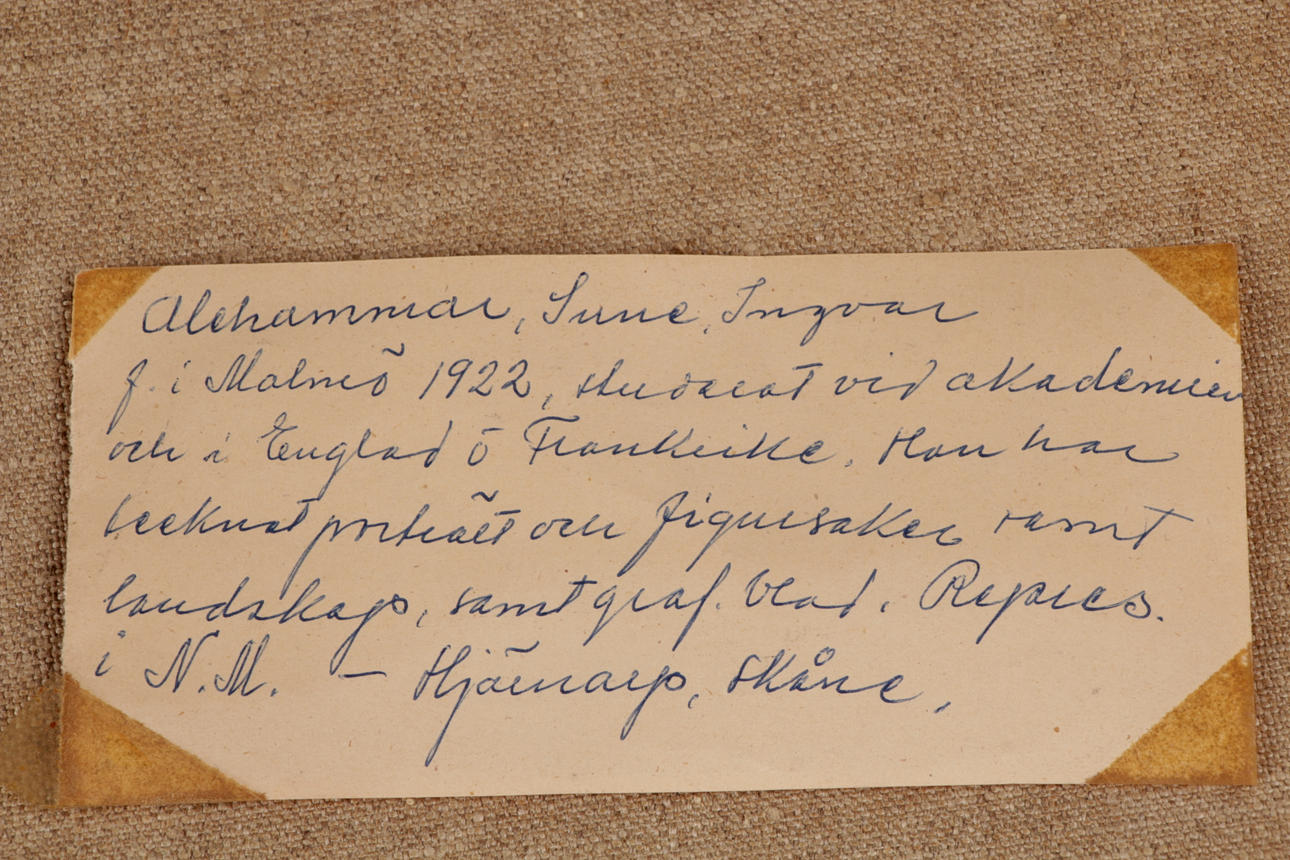 Alehammar, Sune, Ingvar
f. i Malmö 1922, studerat vid akademien
och i Englad ō Frankrike. Han har
tecknat porträtt och figursaker samt
landskap, samt graf. blad. Repres.
i N.M. – Hjärnarp, Skåne.